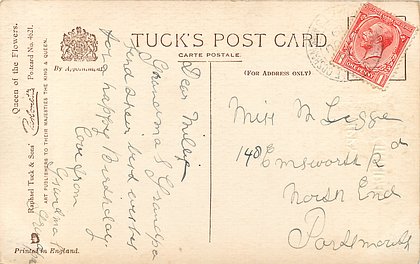 TUCK'S POST CARD
CARTE POSTALE.
(FOR ADDRESS ONLY)
By Appointment.
Queen of the Flowers.
Postcard No. 3621.
Raphael Tuck & Sons'
ART PUBLISHERS TO THEIR MAJESTIES THE KING & QUEEN.
Printed in England.
Dear
Grandma & Grandpa
send their best wishes
for a happy Birthday
Love from
Grandma
Miss M Legge
148 Emsworth Rd
North End
Portsmouth